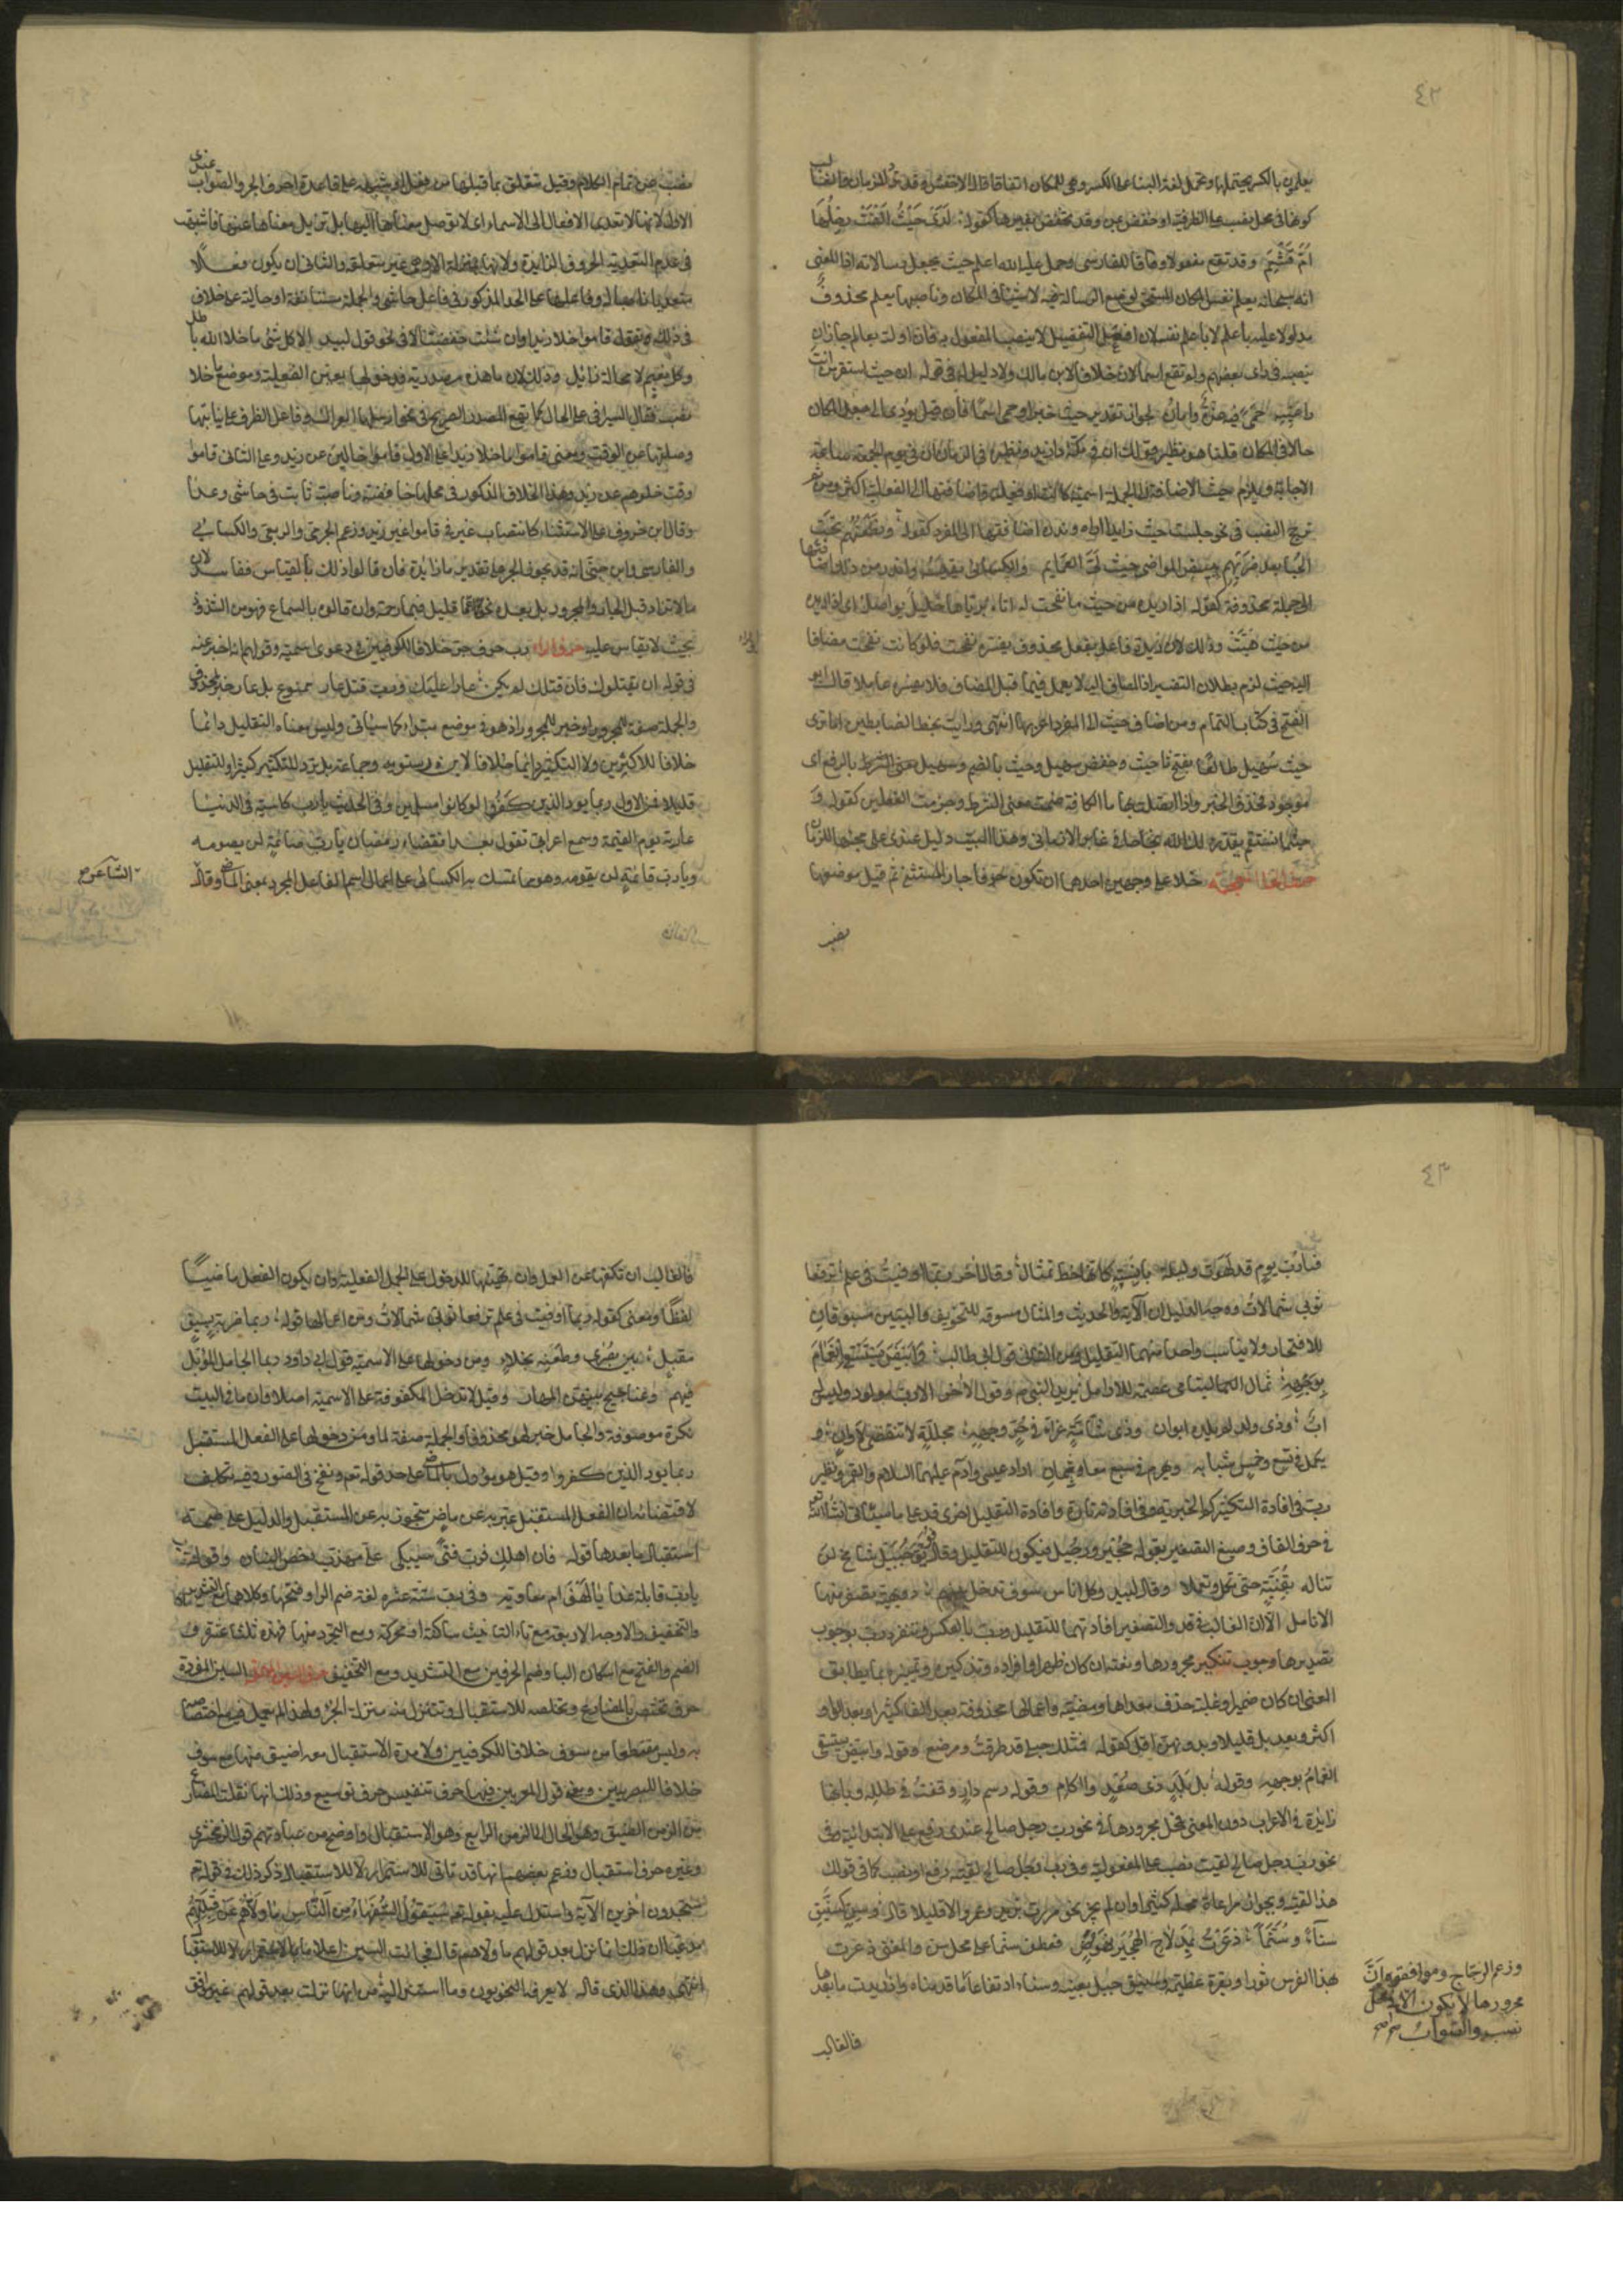 ٤٢
يعلمون بالكسر يحتملها وتحتمل لغة البناء على الكسر وهي للمكان اتفاقا قال الاخفش وقد ترد للزمان والغالب
كونها في محل نصب على الظرفية او خفض بمن وقد تخفض بغيرها كقوله لدى حيث القت رحلها
ام قشعم وقد تقع مفعولا وفاقا للفارسي وحمل عليه الله اعلم حيث يجعل رسالاته اذ المعنى
انه سبحانه يعلم نفس المكان المستحق لوضع الرسالة فيه لا شيئا في المكان وناصبها يعلم محذوفا
مدلولا عليه باعلم لا باعلم نفسه لان افعل التفضيل لا ينصب المفعول به فان اولته بعالم جاز ان
ينصبه في راى بعضهم ولم تقع اسما لان خلافا لابن مالك ولا دليل له في قوله ان حيث استقر من انت
راعيه حمى فيه عزة وامان لجواز تقدير حيث خبرا وحمى اسما فان قيل يؤدي الى جعل المكان
حالا في المكان قلنا هو نظير قولك ان في مكة دار زيد ونظيره في الزمان ان في يوم الجمعة ساعة
الاجابة ويلزم حيث الاضافة الى الجملة اسمية كانت او فعلية واضافتها الى الفعلية اكثر ومن ثم
ترجح النصب في نحو جلست حيث زيدا اراه وندرت اضافتها الى المفرد كقوله ونطعنهم تحت
الحبا بعد ضربهم ببيض المواضي حيث لي العمايم والكسائي يقيسه واندر من ذلك اضافتها
الى جملة محذوفة كقوله اذا ريدة من حيث ما نفحت له اتاه برياها خليل يواصله اي اذا ريدة
من حيث هبت وذلك لان ريدة فاعل بفعل محذوف يفسره نفحت فلو كانت نفحت مضافا
اليه حيث لزم بطلان التفسير اذ المضاف اليه لا يعمل فيما قبل المضاف فلا يفسر عاملا قال ابو
الفتح في كتاب التمام ومن اضاف حيث الى المفرد اعربها انتهى ورايت بخط الضابطين اما ترى
حيث سهيل طالعا بفتح ثا حيث وخفض سهيل وحيث بالضم وسهيل بالرفع اي
موجود فحذف الخبر واذا اتصلت بها ما الكافة ضمنت معنى الشرط وجزمت الفعلين كقوله
حيثما تستقم يقدر لك الله نجاحا في غابر الازمان وهذا البيت دليل عندي على مجئها للزمان
خلا على وجهين احدهما ان تكون حرفا جارا للمستثنى ثم قيل موضعها
نصب
نصب عن تمام الكلام وقيل تتعلق بما قبلها من فعل او شبهه على قاعدة احرف الجر والصواب عندي
الاول لانها لا تعدي الافعال الى الاسماء اي لا توصل معناها اليها بل تزيل معناها عنها فاشبهت
في عدم التعدية الحروف الزايدة ولانها بمنزلة الا وهي غير متعلقة والثاني ان يكون فعلا
متعديا ناصبا له وفاعلها على الحد المذكور في فاعل حاشى والجملة مستانفة او حالية على خلاف
في ذلك وتقول قاموا خلا زيدا وان شئت خفضت الا في نحو قول لبيد الا كل شئ ما خلا الله باطل
وكل نعيم لا محالة زايل وذلك لان ما هذه مصدرية فدخولها يعين الفعلية وموضع ما خلا
نصب فقال السيرافي على الحال كما يقع المصدر الصريح في نحو ارسلها العراك وقيل على الظرف على نيابتها
وصلتها عن الوقت فمعنى قاموا ما خلا زيدا على الاول قاموا خالين عن زيد وعلى الثاني قاموا
وقت خلوهم عن زيد وهذا الخلاف المذكور في محلها خافضة وناصبة ثابت في حاشى وعدا
وقال ابن خروف على الاستثناء كانتصاب غير في قاموا غير زيد وزعم الجرمي والربعي والكسائي
والفارسي وابن جني انه قد يجوز الجر على تقدير ما زايدة فان قالوا ذلك بالقياس ففاسد لان
ما لا تزاد قبل الجار والمجرور بل بعده نحو عما قليل فبما رحمة وان قالوه بالسماع فهو من الشذوذ
بحيث لا يقاس عليه حرف الراء رب حرف جر خلافا للكوفيين في دعوى اسميته وقولهم انه اخبر عنه
في قوله ان يقتلوك فان قتلك لم يكن عارا عليك ورب قتل عار ممنوع بل عار خبر لمحذوف
والجملة صفة للمجرور او خبر للمجرور اذ هو في موضع مبتدا كما سياتي وليس معناه التقليل دائما
خلافا للاكثرين ولا التكثير دائما خلافا لابن درستويه وجماعة بل ترد للتكثير كثيرا وللتقليل
قليلا فمن الاول ربما يود الذين كفروا لو كانوا مسلمين وفي الحديث يا رب كاسية في الدنيا
عارية يوم القيمة وسمع اعرابي يقول بعد انقضاء رمضان يا رب صائمه لن يصومه
ويا رب قائمه لن يقومه وهو مما تمسك به الكسائي على اعمال اسم الفاعل المجرد بمعنى الماضي وقال
الشاعر
٤٣
فيا رب يوم قد لهوت وليلة بانسة كانها خط تمثال وقال اخر ربما اوفيت في علم ترفعن
ثوبي شمالات وجه الدليل ان الآية والحديث والمثال مسوقة للتخويف والبيتين مسوقان
للافتخار ولا يناسب واحدا منهما التقليل ومن الثاني قول ابي طالب وابيض يستسقى الغمام
بوجهه ثمال اليتامى عصمة للارامل يريد النبي م وقول الآخر الا رب مولود وليس له
اب وذي ولد لم يلده ابوان وذي شامة غراء في حر وجهه مجللة لا تنقضي لاوان و
يكمل في تسع وخمس شبابه ويهرم في سبع معا وثمان اراد عيسى وآدم عليهما السلام والقمر ونظير
رب في افادة التكثير كم الخبرية وفي افادته تارة وافادة التقليل اخرى قد على ما سياتي ان شاء الله تعالى
في حرف القاف وصيغ التصغير يقول حجير ورجيل فيكون للتقليل وقال فويق جبيل شامخ لن
تناله بقنته حتى تكل وتعملا وقال لبيد وكل اناس سوف تدخل بينهم دويهية تصفر منها
الانامل الا ان الغالب في قد والتصغير افادتهما للتقليل ورب بالعكس وتنفرد رب بوجوب
تصديرها ووجوب تنكير مجرورها ونعته ان كان ظاهرا وافراده وتذكيره وتمييزه بما يطابق
المعنى ان كان ضميرا وغلبة حذف معداها ومضيه واعمالها محذوفة بعد الفاء كثيرا وبعد الواو
اكثر وبعد بل قليلا وبدونهن اقل كقوله فمثلك حبلى قد طرقت ومرضع وقوله وابيض يستسقى
الغمام بوجهه وقوله بل بلد ذي صعد والاكام وقوله رسم دار وقفت في طلله وبانها
زايدة في الاعراب دون المعنى فمحل مجرورها في نحو رب رجل صالح عندي رفع على الابتدائية وفي
نحو رب رجل صالح لقيت نصب على المفعولية وفي رب رجل صالح لقيته رفع او نصب كما في قولك
هذا لقيته ويجوز مراعاة محله كثيرا وان لم يجز نحو مررت بزيد وعمروا الا قليلا قال وسن كسنيق
سناء وسنما ذعرت بمدلاج الهجير نهوض فعطف سنما على محل سن والمعنى ذعرت
بهذا الفرس ثورا وبقرة عظيمة وسنيق جبل بعينه وسناء ارتفاعا قدمناه واذا زيدت ما بعدها
وزعم الزجاج وموافقوه ان
مجرورها لا يكون الا في محل
نصب والصواب
فالغالب
فالغالب ان تكفها عن العمل وان تهيئها للدخول على الجمل الفعلية وان يكون الفعل ماضيا
لفظا ومعنى كقوله ربما اوفيت في علم ترفعن ثوبي شمالات ومن اعمالها قوله ربما ضربة بسيف
صقيل بين بصرى وطعنة نجلاء ومن دخولها على الاسمية قول ابي داود ربما الجامل المؤبل
فيهم وعناجيج بينهن المهار وقيل لا تدخل المكفوفة على الاسمية اصلا وان ما في البيت
نكرة موصوفة والجامل خبر لهو محذوفا والجملة صفة لما ومن دخولها على الفعل المستقبل
ربما يود الذين كفروا وقيل هو مؤول بالماضي على حد قوله تعالى ونفخ في الصور وفيه تكلف
لاقتضائه ان الفعل المستقبل عبر به عن ماض متجوز به عن المستقبل والدليل على صحة
استقبال ما بعدها قوله فان اهلك فرب فتى سيبكي علي مهذب رخص البنان وقوله
يا رب قايلة غدا يا لهف ام معاوية وفي رب ستة عشرة لغة ضم الراء وفتحها وكلاهما مع التشديد
والتخفيف والاوجه الاربعة مع تاء التانيث ساكنة او محركة ومع التجرد منها فهذه ثلثا عشرة و
الضم والفتح مع اسكان الباء وضم الحرفين مع التشديد ومع التخفيف السين المفردة
حرف تختص بالمضارع وتخلصه للاستقبال وتتنزل منه منزلة الجزء ولهذا لم تعمل فيه مع اختصاصها
به وليس مقتطعا من سوف خلافا للكوفيين ولا مدة الاستقبال معه اضيق منها مع سوف
خلافا للبصريين ومعنى قول المعربين فيها حرف تنفيس حرف توسيع وذلك انها نقلت المضارع
من الزمن الضيق وهو الحال الى الزمن الواسع وهو الاستقبال واوضح من عبارتهم قول الزمخشري
وغيره حرف استقبال وزعم بعضهم انها قد تاتي للاستمرار لا للاستقبال ذكر ذلك في قوله تعالى
ستجدون آخرين الآية واستدل عليه بقوله تعالى سيقول السفهاء من الناس ما ولاهم عن قبلتهم
مدعيا ان ذلك انما نزل بعد قولهم ما ولاهم قال فجاءت السين اعلاما بالاستمرار لا للاستقبال
انتهى وهذا الذي قاله لا يعرفه النحويون وما استند اليه من انها نزلت بعد قولهم غير موافق